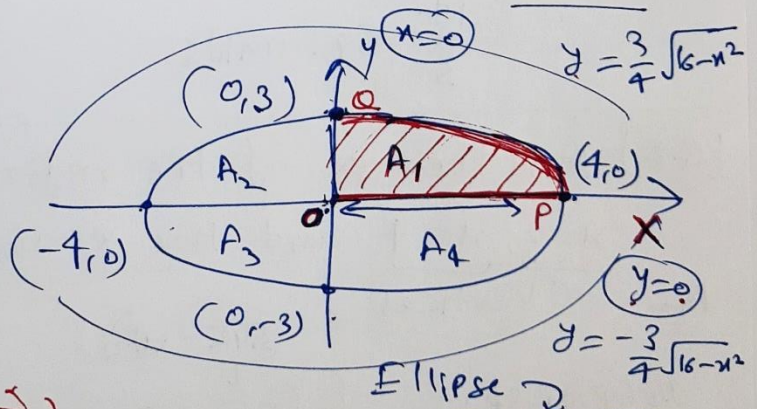 x=0
y
y = 3/4 √16-x²
(0,3)
Q
A₂
A₁
(4,0)
O
P
X
(-4,0)
A₃
A₄
y=0
(0,-3)
y = -3/4 √16-x²
Ellipse